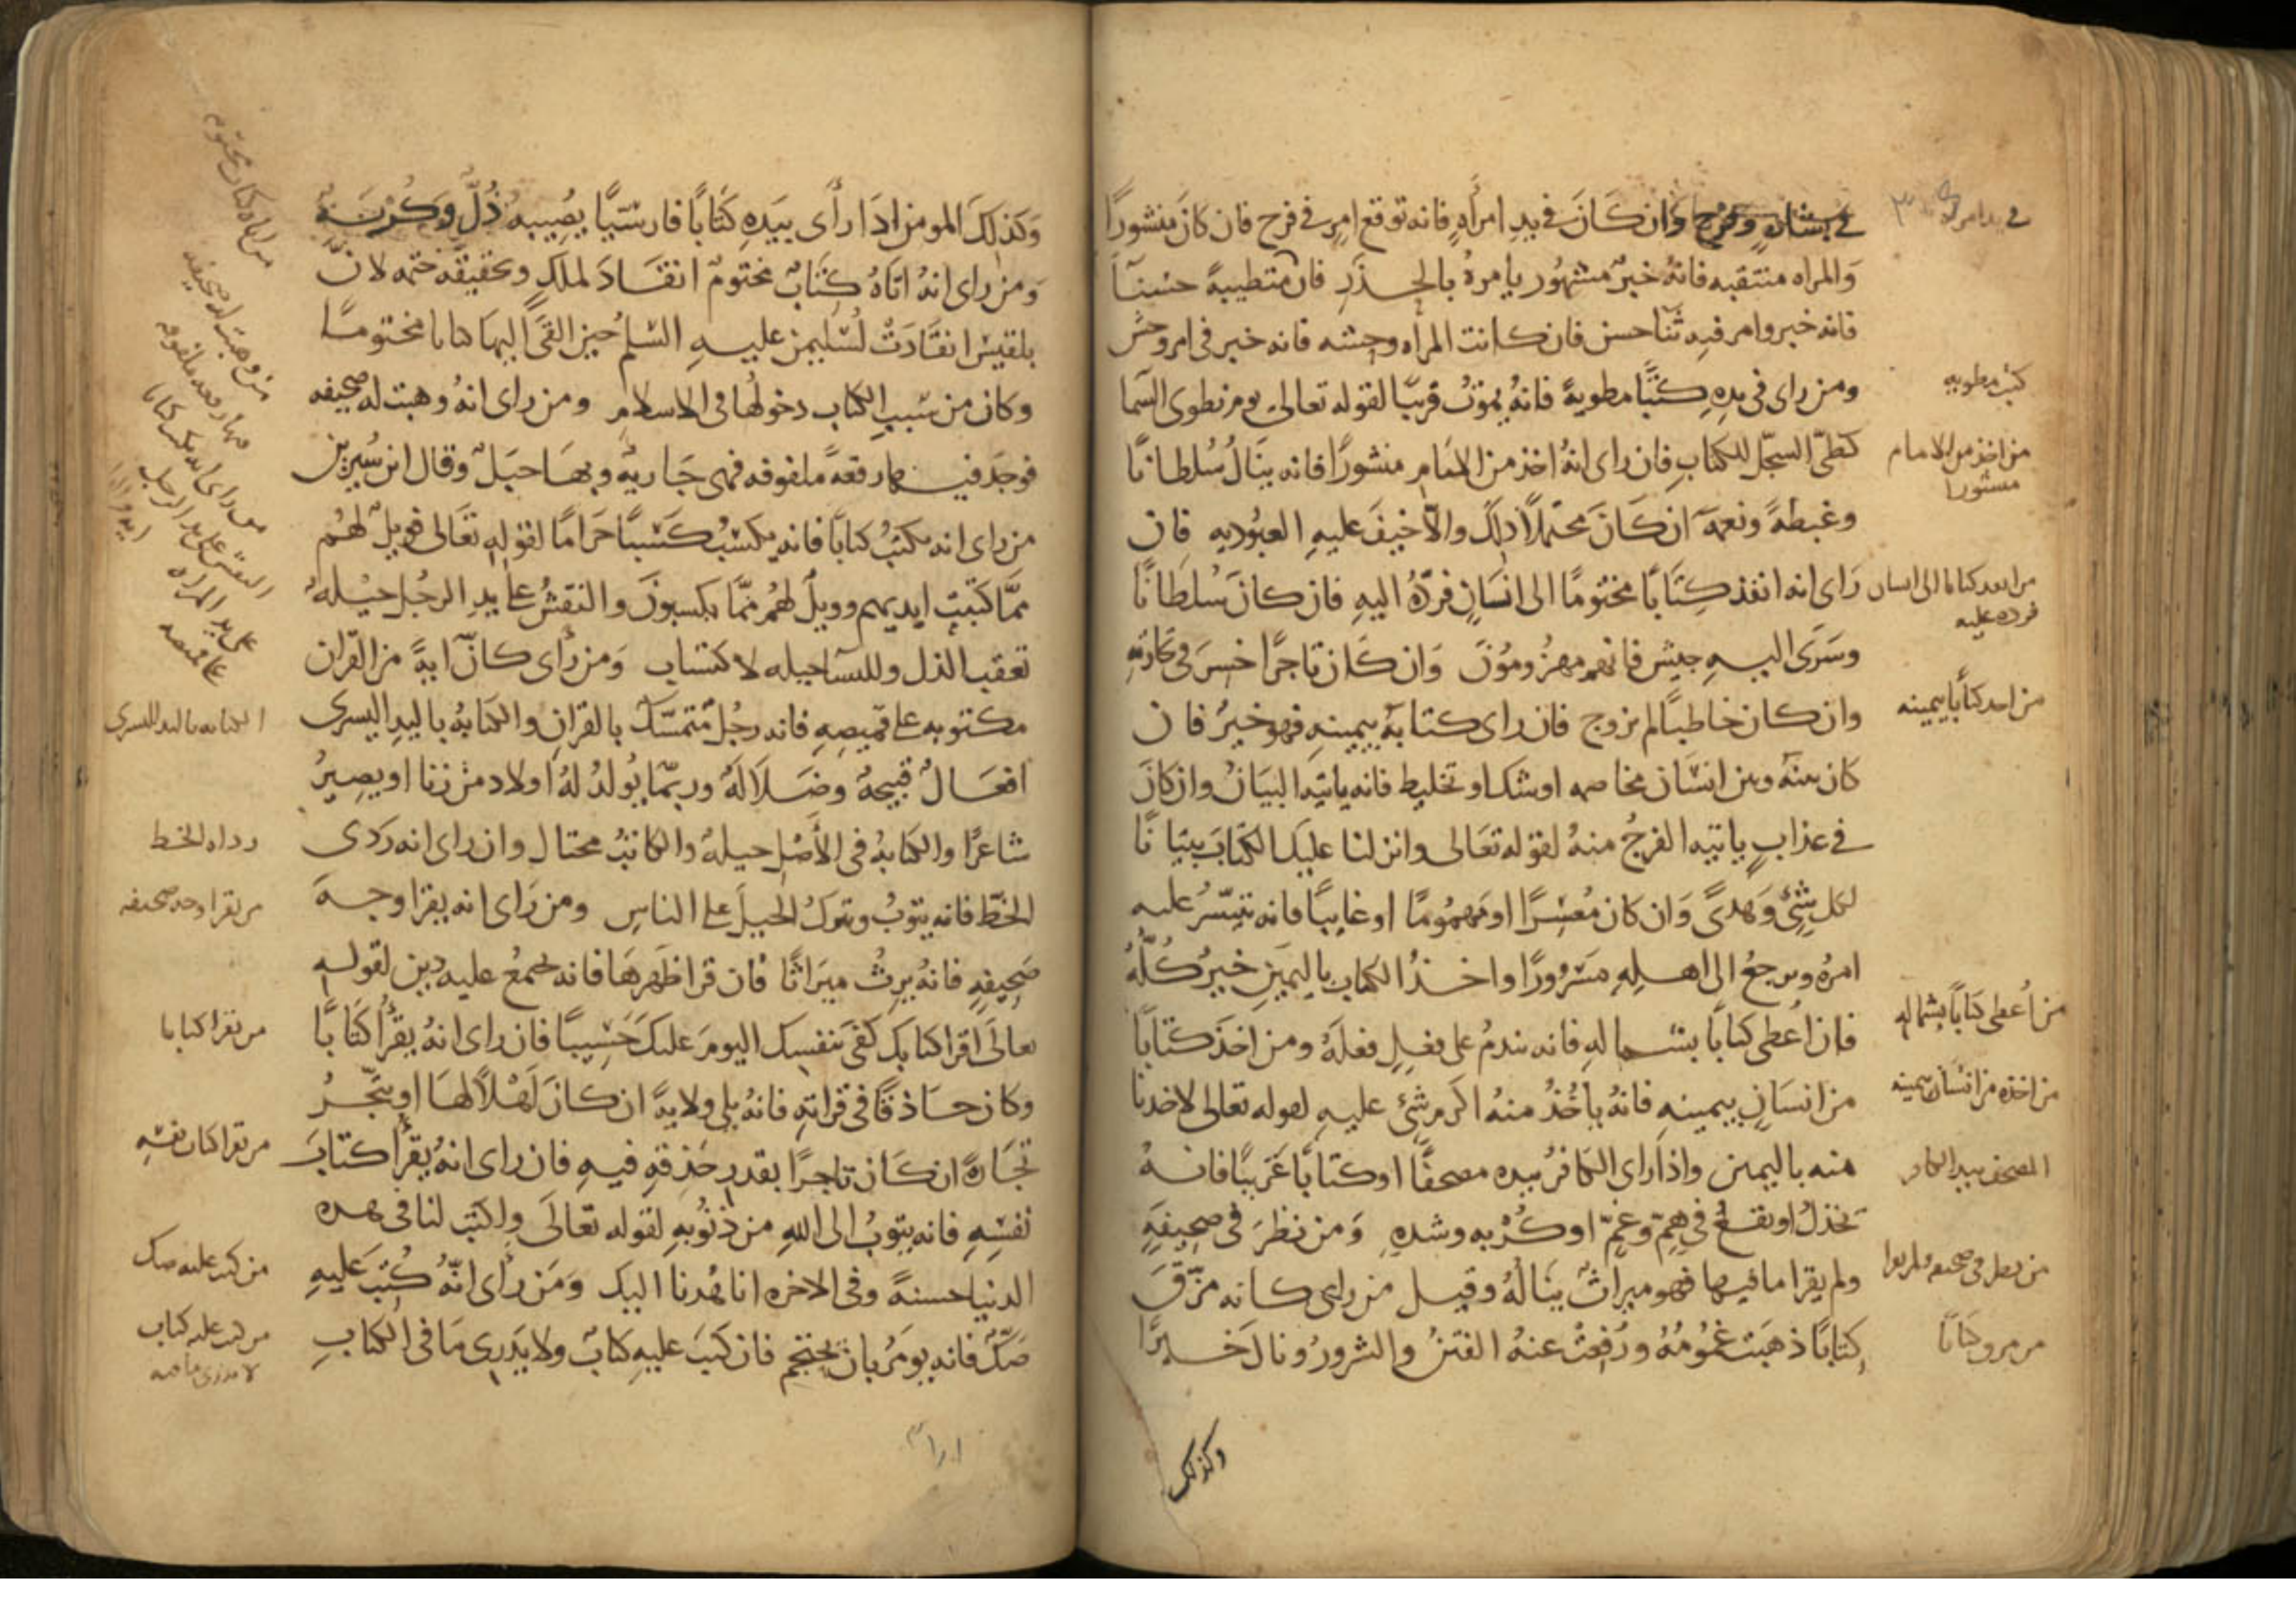 في بشاره وفرح وان كَانَ في يدِ امرأهٍ فانه توقع امرٍ في فرح فان كانَ منشورًا
وَالمراه منتقبه فانهُ خبرٌ مشهُور يامرهُ بالحذَرِ فان متطيبةً حسَنآ
فانه خبر وامر فيه ثنآ حسن فان كانت المرأه وحِشه فانه خبر في امرٍ وحش
ومن راى في يدِهِ كتُبًا مطويةً فانهُ يموتُ قريبًا لقوله تعالى يوم نطوى السّما
كطىّ السجّل للكتابِ فان راى انهُ اخذ من الامَامِ منشورًا فانه ينَالُ سُلطانًا
وغبطةً ونعمةً ان كَانَ محتملاً ذلك والاّ خيفَ عليهِ العبُوديه فان
رَاى انه انفذ كِتَابًا مختومًا الى انسَانٍ فردّهُ اليهِ فان كانَ سُلطَانًا
وسَرَى اليهِ جيش فانهم مهزُومُونَ وَان كَان تاجرًا خسِرَ في تجارتهِ
وان كان خاطبًا لم يزوج فان راى كتابةً بيمينهِ فهو خيرٌ فان
كان بينَهُ وبين انسَان مخاصمه او شك او تخليط فانه ياتيَهِ البيَانُ وان كانَ
في عذابٍ ياتيه الفرجُ منهُ لقوله تعَالى وانزلنا عليك الكتَابَ تبيَانًا
لكل شيْءٍ وَهدىً وَان كان مُعسِرًا او مهمُومًا او غايبًا فانه تتيسّرُ عليه
امرُهُ ويرجعُ الى اهلِهِ مَسْرُورًا واخذُ الكتاب باليمَينِ خيرٌ كُلّهُ
فان اُعطى كتابًا بشمالهِ فانه يندمُ على فعلٍ فعلَهُ ومن اخذَ كتابًا
من انسَانٍ بيمينهِ فانهُ ياخُذُ منهُ اكرم شئٍ عليهِ لقوله تعالى لاخذنا
منه باليمين واذا راى الكافرُ بيده مصحفًا او كتابًا عَرَبيًا فانهُ
يخذلُ او يقعُ في هِمّ وغمّ او كُرْبه وشدهِ وَمن نظرَ في صحِيفةٍ
ولم يقرا ما فيها فهو ميراثٌ ينَالُهُ وقيل من راى كانه مزّقَ
كتابًا ذهبَت غُمومُهُ ودُفِعتْ عنهُ الفتنُ والشرورُ ونالَ خيرًا
وكذلك
كتب مطويه
من اخذ من الامام
منشورا
من انفد كتابا الى انسان
فرده عليه
من اخذ كتاباً بيمينه
من أُعطى كتَاباً بشماله
من اخذه من انسَان بيمينه
المصحف بيد الكافر
من نظر في صحيفه ولم يقرا
من مزق كتَابًا
وَكذلِكَ المومن اذَا رأَى بيَدهِ كتَابًا فارسّيًا يصُيبهُ ذُلّ وَكُرْبَةٌ
وَمن راى انهُ اتَاهُ كِتَابٌ مختومٌ انقَادَ لملكٍ وتحقيقه ختمه لانّ
بلقيسَ انقَادَتْ لسُليمن عليهِ السّلمُ حين القَى اليهَا كتابا مختومًا
وكان من سَببِ الكتاب دخولُهَا في الاسلام ومن راى انهُ وهبت له صحيفه
فوجَد فيها رقعةً ملفوفه فهى جَاريةٌ وبهَا حبَلٌ وقال ابن سيرين
من راى انه يكتبُ كتابًا فانه يكسبُ كَسْبًا حرَامًا لقوله تعَالى فويلٌ لهُم
ممَّا كتبَت ايديهم وويلٌ لهُم ممَّا يكسبونَ والنقشُ على يدِ الرجُلِ حيْلهٌ
تعقب الذل وللنسآ حيله لاكتسَاب وَمن رأى كانّ ايةً من القرآن
مكتوبه على قميصِهِ فانه رجُلٌ مُتمَسّكٌ بالقرانِ والكتابةُ باليدِ اليسرى
افعَالٌ قبيحةٌ وضَلاَلَةٌ وربمّا يُولدُ لهُ اولاد من زنا او يصِيرُ
شاعرًا والكتابةُ في الأصْلِ حيلهٌ والكاتبُ محتال وان راى انه رَدى
الخطّ فانه يتوبُ ويتركُ الحيلَ على الناسِ ومن رَاى انه يقرا وجهَ
صَحِيفهٍ فانهُ يرثُ ميرَاثًا فان قرا ظهرهَا فانه يجمعُ عليه دين لقولهِ
تعالَى اقرا كتابَك كفَى بنفسِك اليومَ عليكَ حَسِيبًا فان راى انهُ يقرُأ كتَابًا
وكان حَاذقًا في قراتهِ فانهُ يلي ولايةً ان كانَ لَهْلاً لهَا او يتّجِرُ
تجَارةً ان كَان تاجرًا بقدرِ حَذقهِ فيهِ فان راى انهُ يقرُأ كتَابَ
نفسِهِ فانه يتوبُ الى اللهِ من ذنُوبهِ لقوله تعَالَى واكتُب لنا في هذه
الدنيا حسنةً وفي الاخره انا هُدنا اليك وَمَن رأى انّهُ كُتبَ عَليهِ
صَكٌ فانه يومَرُ بان يحتجم فان كتَبَ عليهِ كتابٌ ولا يَدرِى مَا في الكتابِ
الكتابه باليد اليسرى
رداه الخط
من يقرا وجه صحيفه
من يقرا كتابا
من يقرا كتاب نفسه
من كتب عليه صك
من كتب عليه كتاب
لا يدرى ما فيه